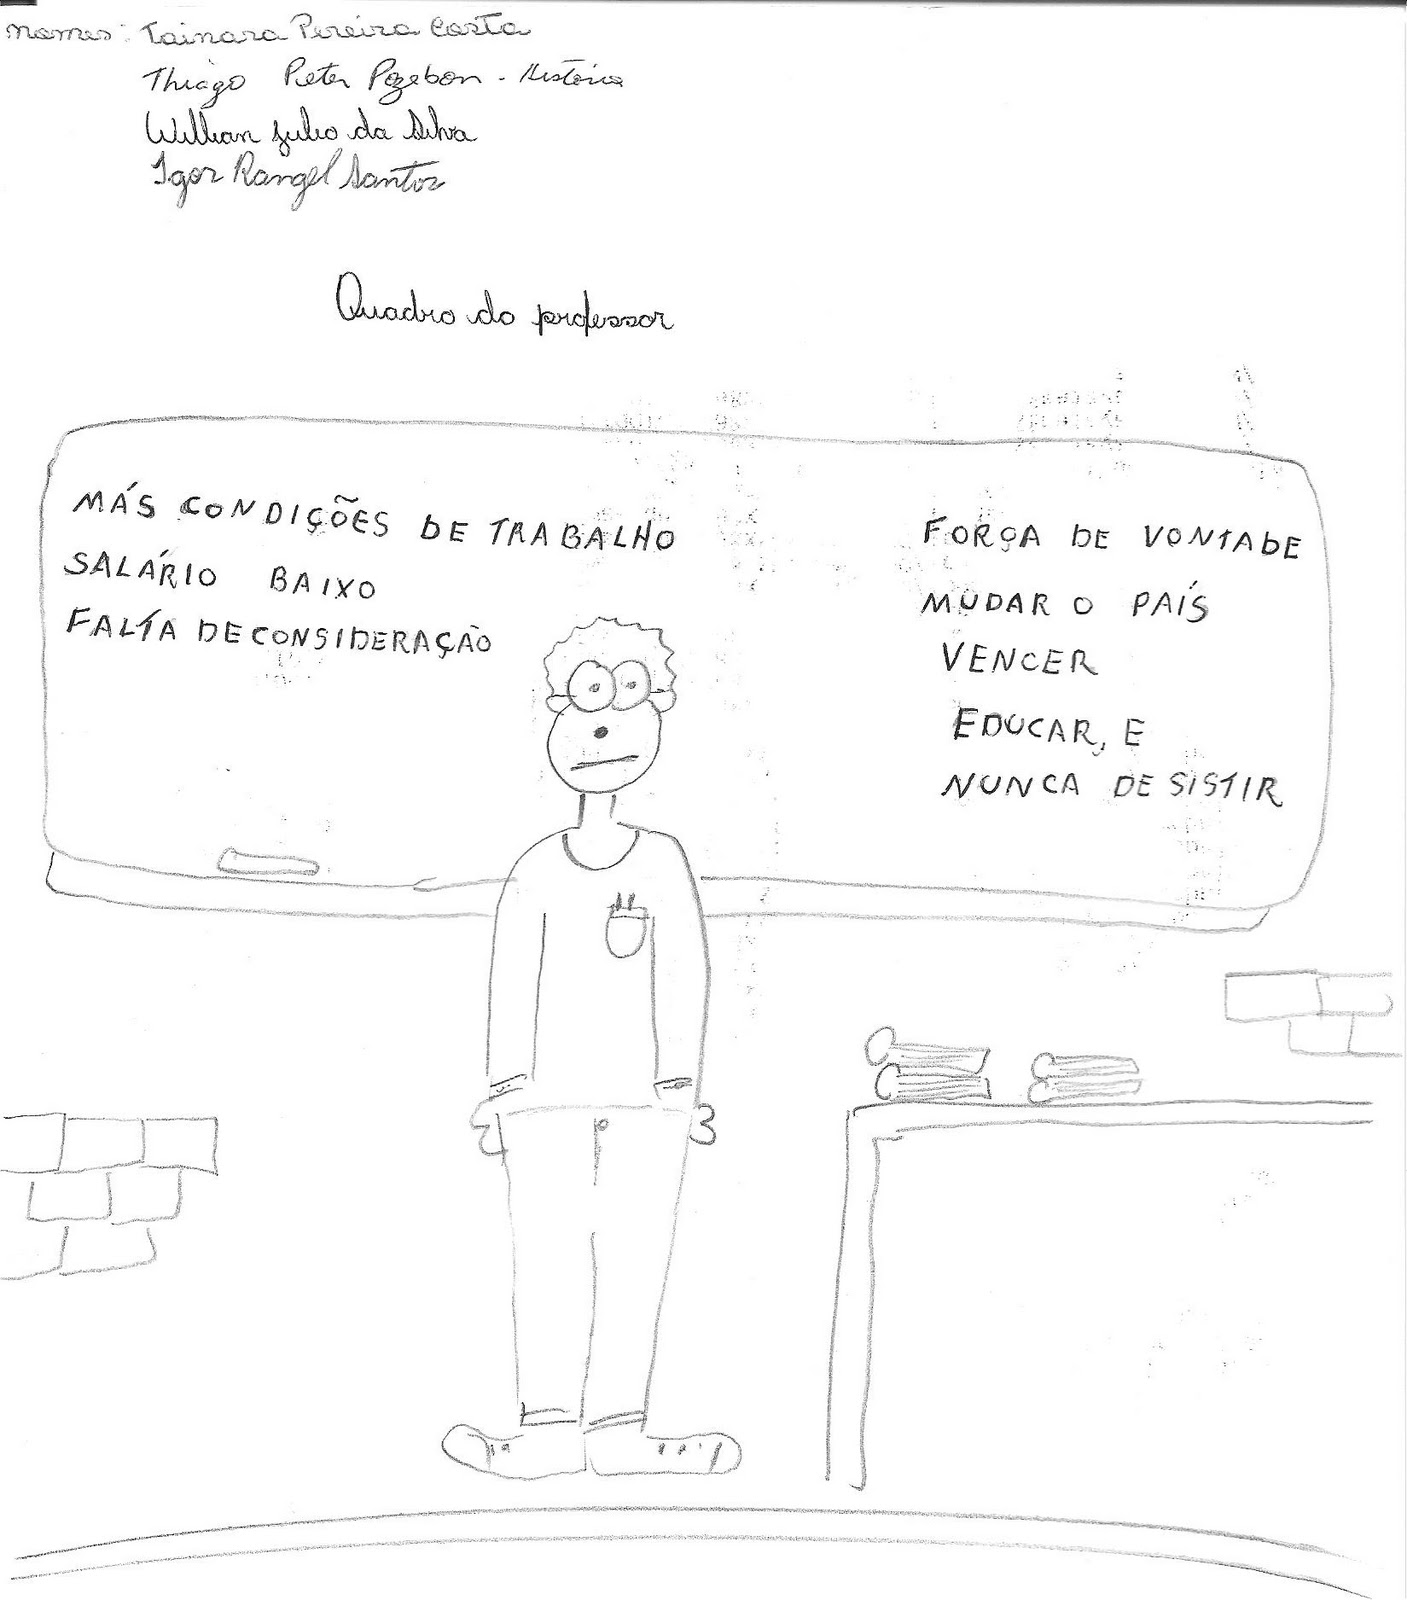 Nomes: Tainara Pereira Costa
Thiago Pieter Pozebon - História
Willian Julio da Silva
Igor Rangel Santos
Quadro do professor
MÁS CONDIÇÕES DE TRABALHO
SALÁRIO BAIXO
FALTA DE CONSIDERAÇÃO
FORÇA DE VONTADE
MUDAR O PAÍS
VENCER
EDUCAR, E
NUNCA DESISTIR